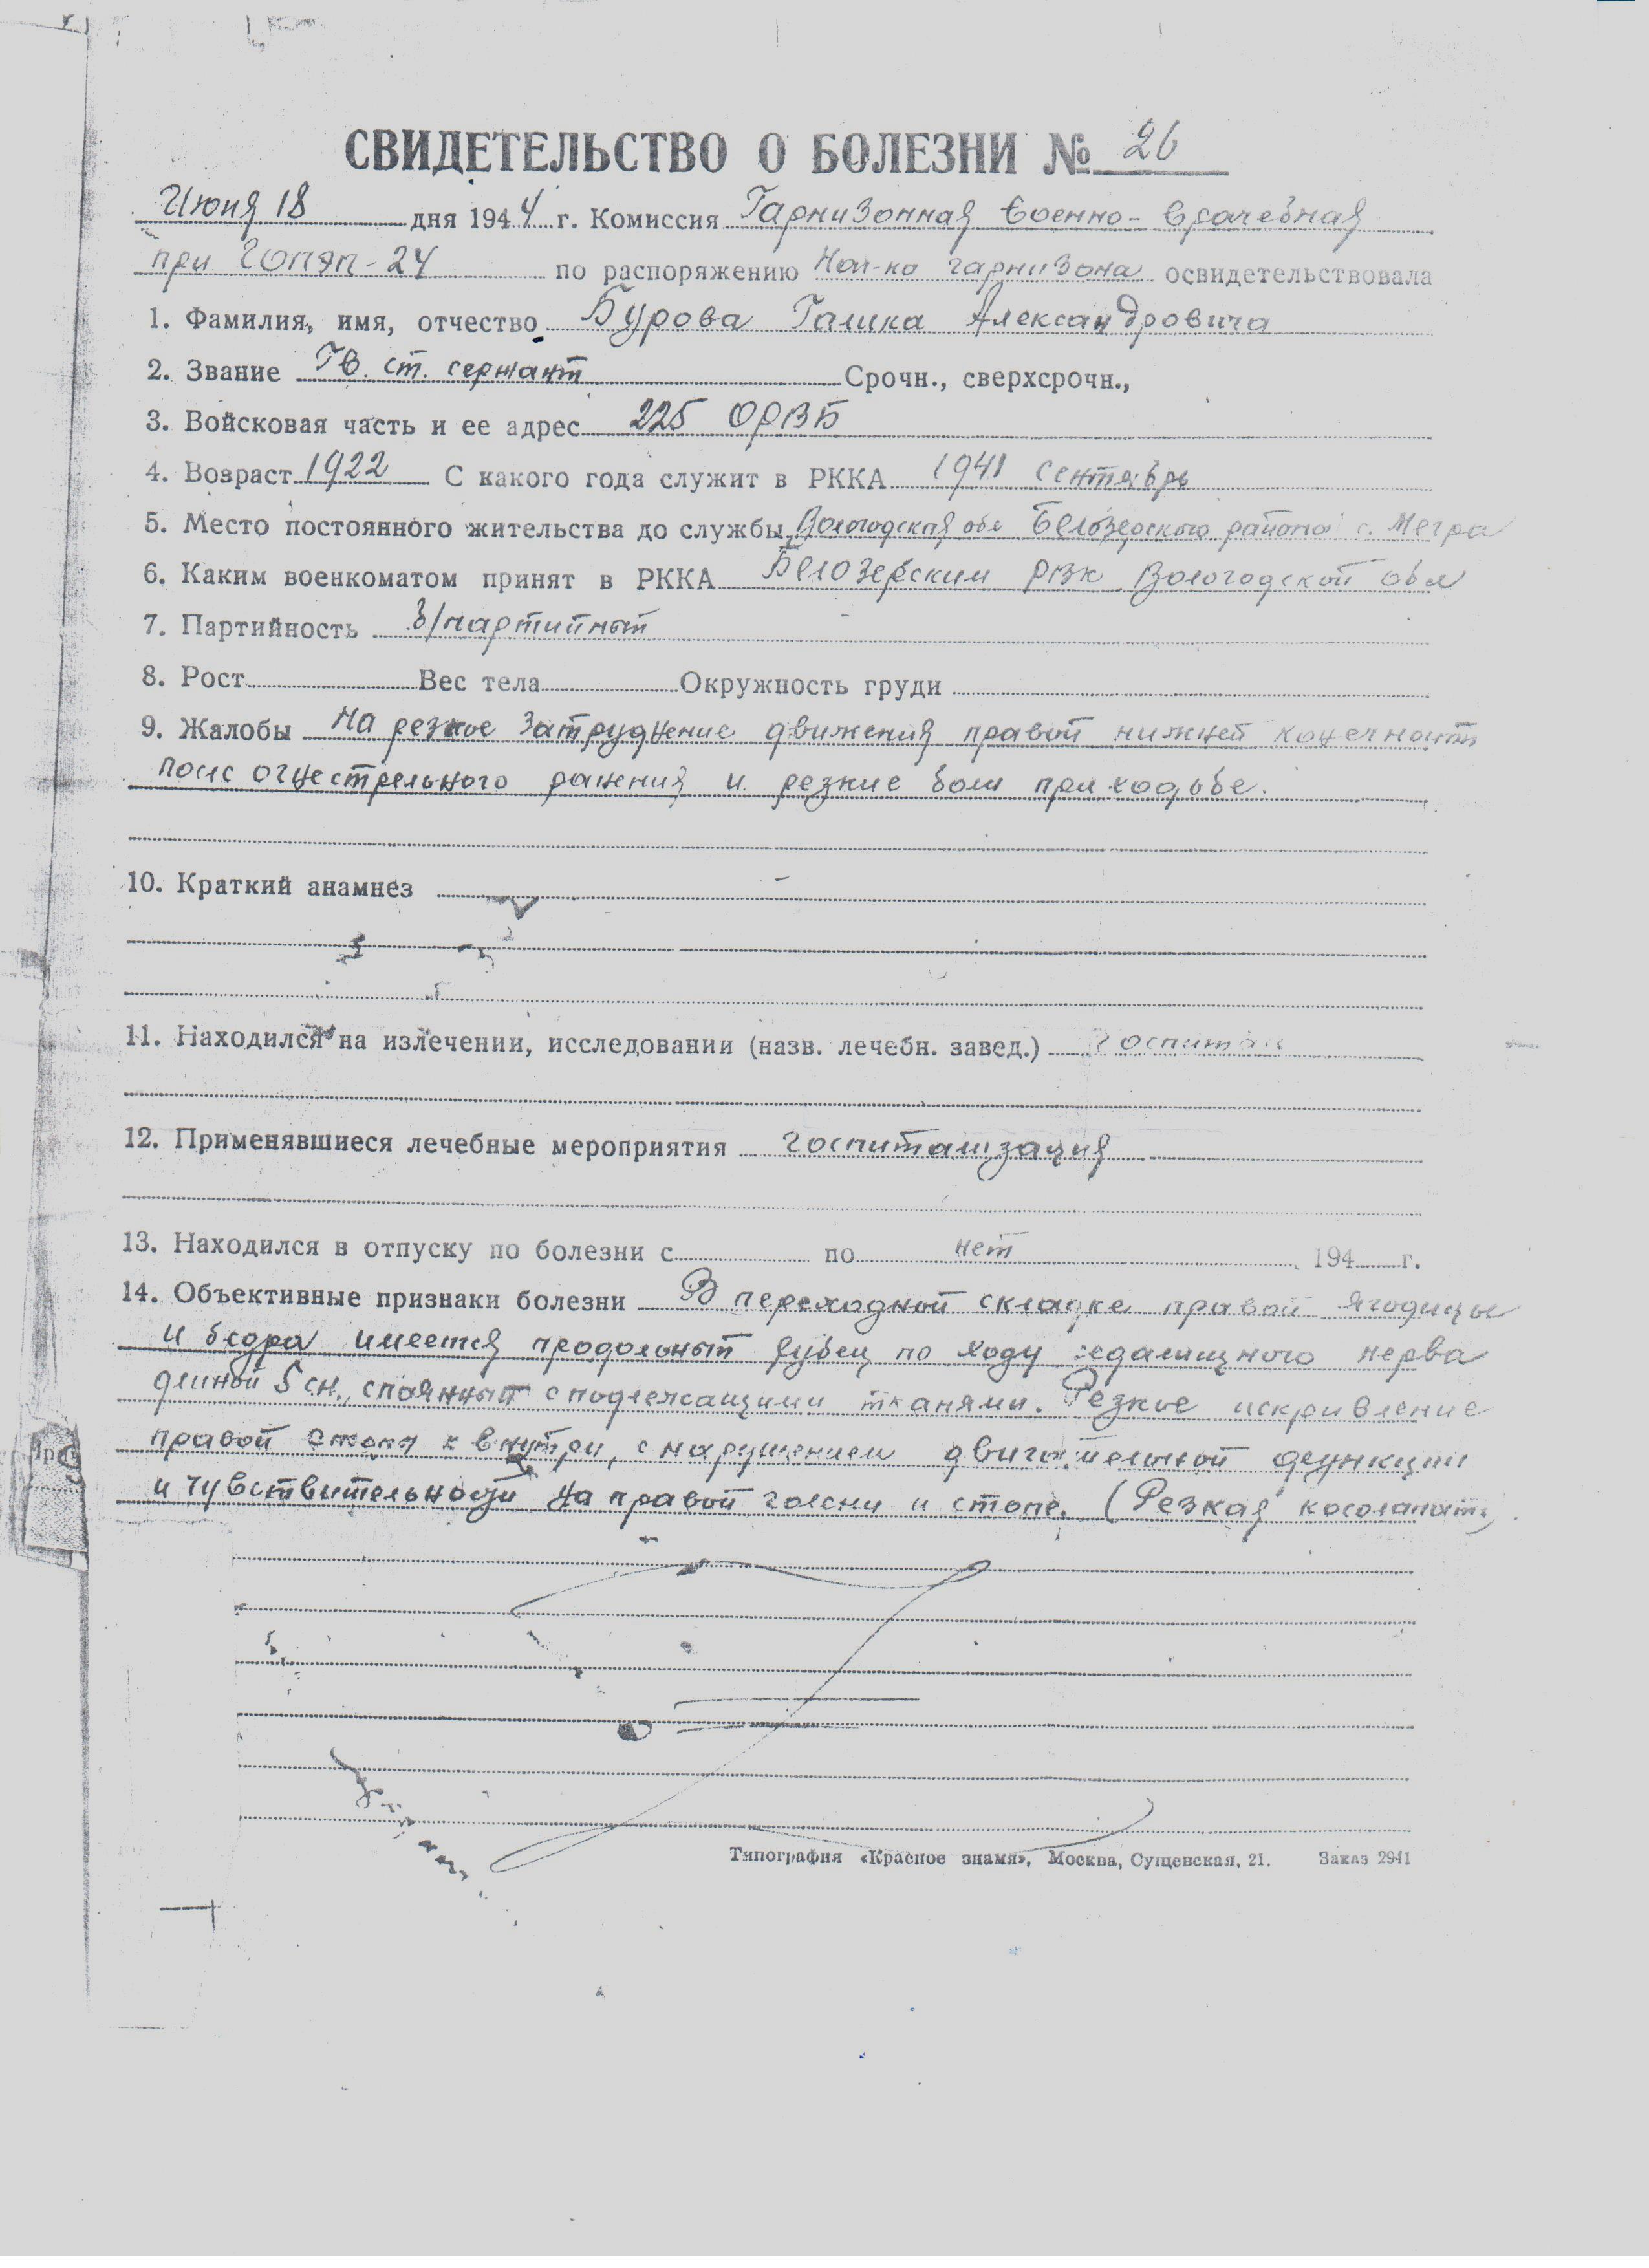 СВИДЕТЕЛЬСТВО О БОЛЕЗНИ № 26
Июня 18 дня 1944 г. Комиссия Гарнизонная военно-врачебная
при ГОПЭП-24 по распоряжению Нач-ка гарнизона освидетельствовала
1. Фамилия, имя, отчество Бурова Александровича
2. Звание Гв. ст. сержант Срочн., сверхсрочн.,
3. Войсковая часть и ее адрес 225 ОРВБ
4. Возраст 1922 С какого года служит в РККА 1941 сентябрь
5. Место постоянного жительства до службы Вологодская обл Белозерского района с. Мегра
6. Каким военкоматом принят в РККА Белозерским РВК Вологодской обл
7. Партийность б/партийный
8. Рост Вес тела Окружность груди
9. Жалобы На резкое затруднение движения правой нижней конечности
после огнестрельного ранения и резкие боли при ходьбе.
10. Краткий анамнез
11. Находился на излечении, исследовании (назв. лечебн. завед.) госпитали
12. Применявшиеся лечебные мероприятия госпитализация
13. Находился в отпуску по болезни с по нет 194 г.
14. Объективные признаки болезни В переходной складке правой ягодицы
и бедра имеется продольный рубец по ходу седалищного нерва
длиной 5 см., спаянный с подлежащими тканями. Резкое искривление
правой стопы к внутри, с нарушением двигательной функции
и чувствительности на правой голени и стопе. (Резкая косолапость)
Типография «Красное знамя», Москва, Сущевская, 21. Заказ 2941